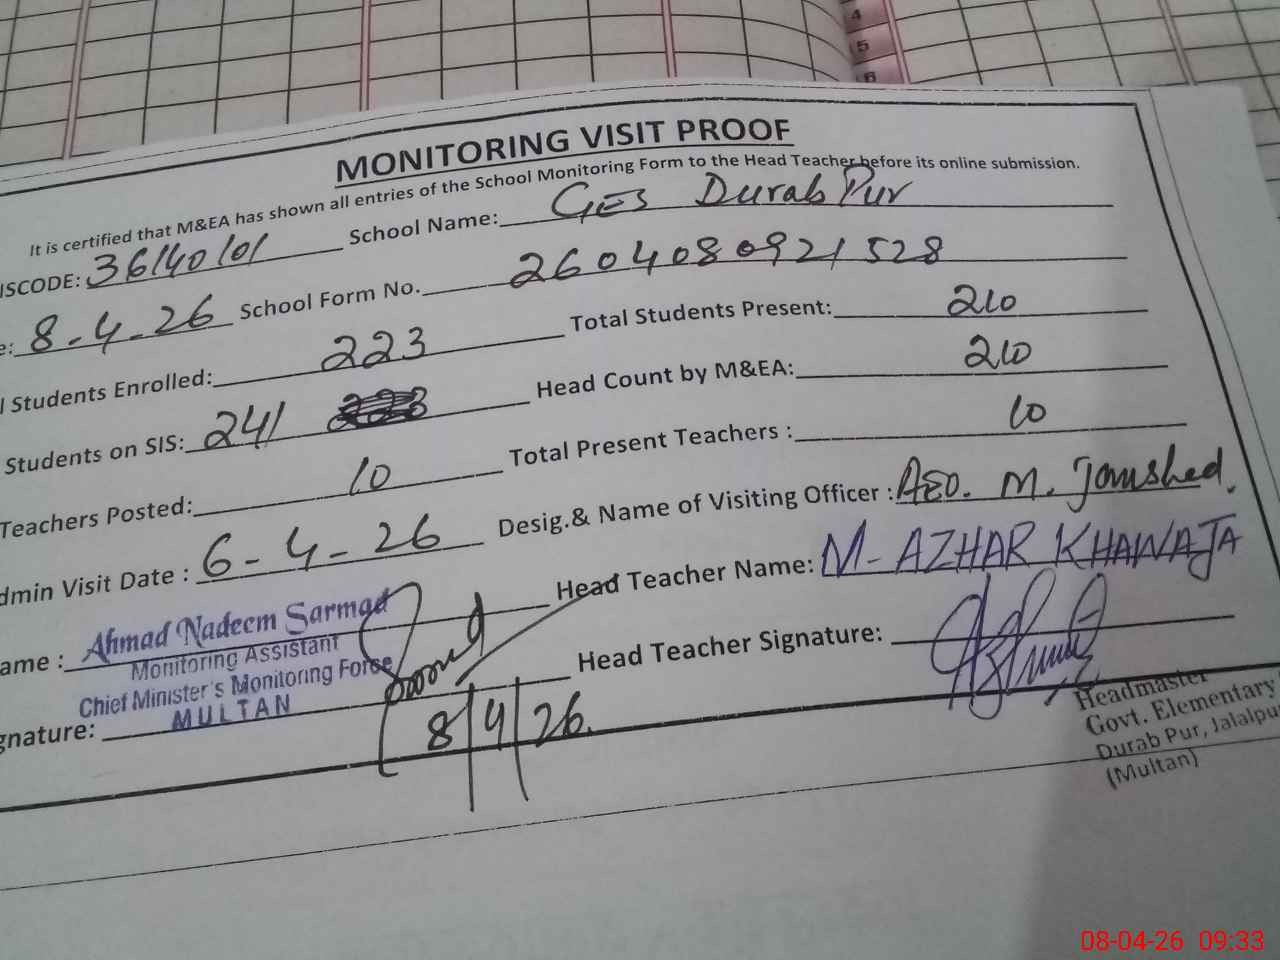 4
5
6
MONITORING VISIT PROOF
It is certified that M&EA has shown all entries of the School Monitoring Form to the Head Teacher before its online submission.
ISCODE: 36140101 School Name: GES Durab Pur
e: 8-4-26 School Form No. 2604080921528
l Students Enrolled: 223 Total Students Present: 210
Students on SIS: 241 Head Count by M&EA: 210
Teachers Posted: 10 Total Present Teachers : 10
dmin Visit Date : 6-4-26 Desig.& Name of Visiting Officer : AEO. M. Jamshed.
ame : Ahmad Nadeem Sarmad Head Teacher Name: M-AZHAR KHAWAJA
Monitoring Assistant
Chief Minister's Monitoring Force
gnature: MULTAN Head Teacher Signature:
8/4/26.
Headmaster
Govt. Elementary
Durab Pur, Jalalpu
(Multan)
08-04-26 09:33